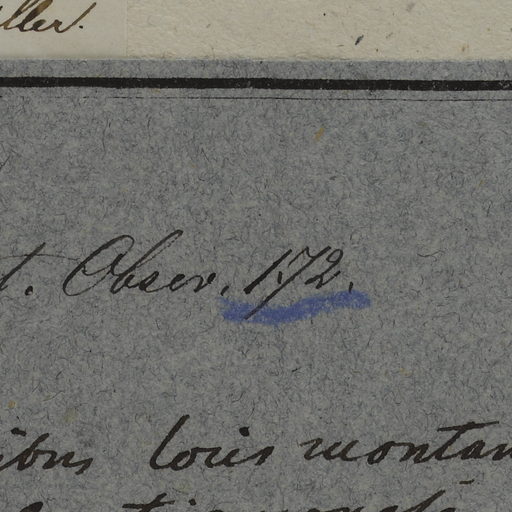 ller.
t. Observ. 172.
ibus locis montan